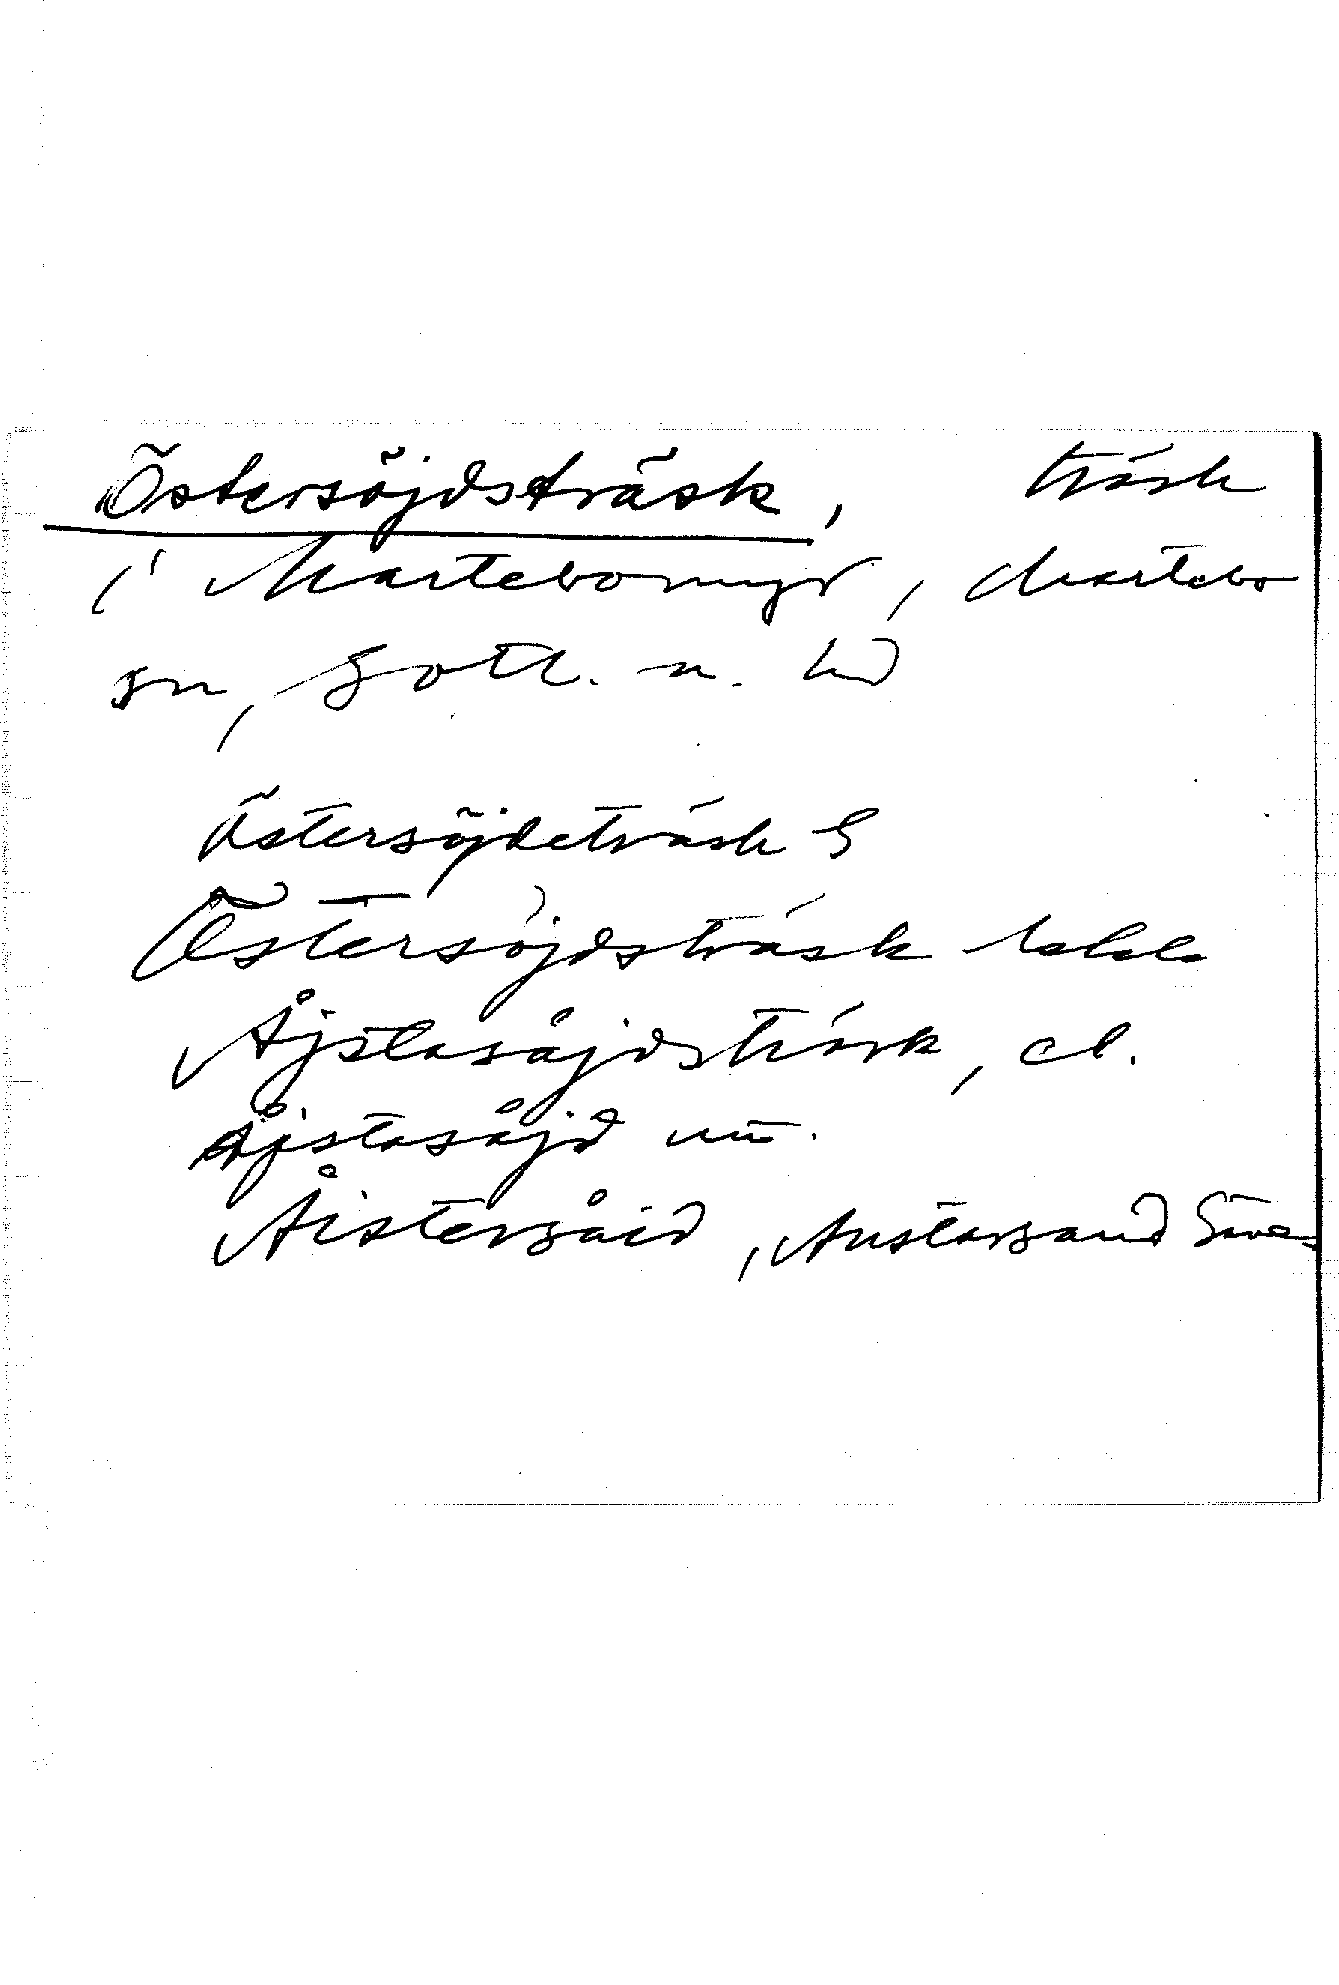 Östersöjdsträsk, träsk
i Martebomyr, Martebo
sn, Gotl. n. hd
Östersöjdeträsk G
Östersöjdsträsk
Åjstasåjdsträsk, el.
Åjstasåjd
Åistersåid, Austarsaud Säve